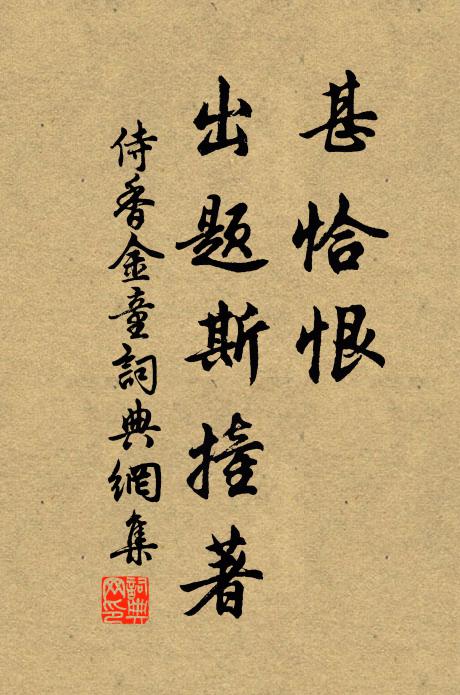 甚恰恨
出题斯撞著
侍香金童詞典網集
詞典
网印